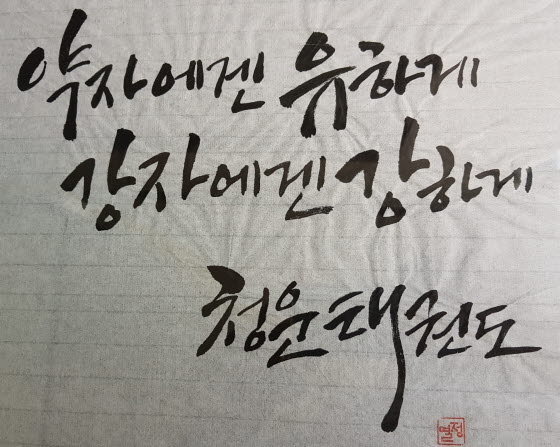 약자에겐 유하게
강자에겐 강하게
청윤태권도
열정